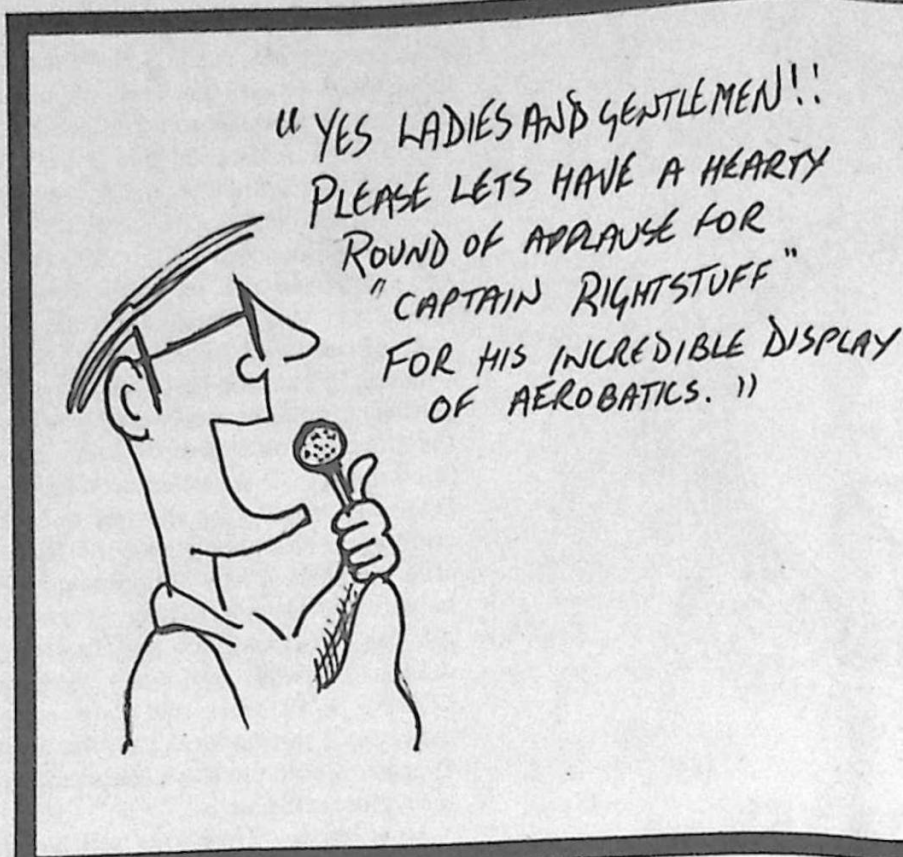 “YES LADIES AND GENTLEMEN!!
PLEASE LETS HAVE A HEARTY
ROUND OF APPLAUSE FOR
"CAPTAIN RIGHTSTUFF"
FOR HIS INCREDIBLE DISPLAY
OF AEROBATICS.”